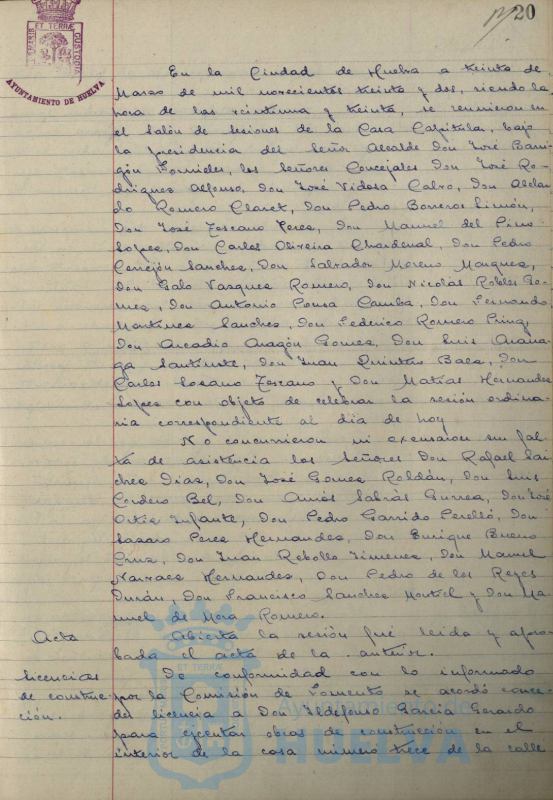 20
AYUNTAMIENTO DE HUELVA
En la Ciudad de Huelva a treinta de
Marzo de mil novecientos treinta y dos, siendo la
hora de las veintiuna y treinta, se reunieron en
el Salón de sesiones de la Casa Capitular, bajo
la presidencia del Señor Alcalde Don José Barri-
gón Fornieles, los Señores Concejales Don José Ro-
driguez Alfonso, Don José Vidosa Calvo, Don Abelar-
do Romero Claret, Don Pedro Borrero Limón,
Don José Toscano Perez, Don Manuel del Pino
Lopez, Don Carlos Oliveira Chardenal, Don Pedro
Cerejón Sanchez, Don Salvador Moreno Marquez,
Don Galo Vazquez Romero, Don Nicolás Robles Go-
mez, Don Antonio Pousa Camba, Don Fernando
Martinez Sanchez, Don Federico Romero
Don Arcadio Aragón Gomez, Don Luis
Don Juan Quintero Baez, Don
Carlos Lozano Toscano y Don Matías Hernandez
Lopez con objeto de celebrar la sesión ordina-
ria correspondiente al día de hoy
No concurrieron ni excusaron su fal-
ta de asistencia los Señores Don Rafael San-
chez Diaz, Don José Gomez Roldán, Don Luis
Cordero Bel, Don Amós Sabrás Gurrea, Don José
Ortiz Infante, Don Pedro Garrido Perelló, Don
Lazaro Perez Hernandez, Don Enrique Bueno
Cruz, Don Juan Rebollo Jimenez, Don Manuel
Narvaez Hernandez, Don Pedro de los Reyes
Durán, Don Francisco Sanchez Montiel y Don Ma-
nuel de Mora Romero.
Acta
Abierta la sesión fué leida y apro-
bada el acta de la anterior.
Licencias
de construc-
ción.
De conformidad con lo informado
por la Comisión de Fomento se acordó conce-
der licencia a Don Ildefonso Garcia Gerardo
para ejecutar obras de construcción en el
interior de la casa número trece de la calle
Ayuntamiento de
HUELVA